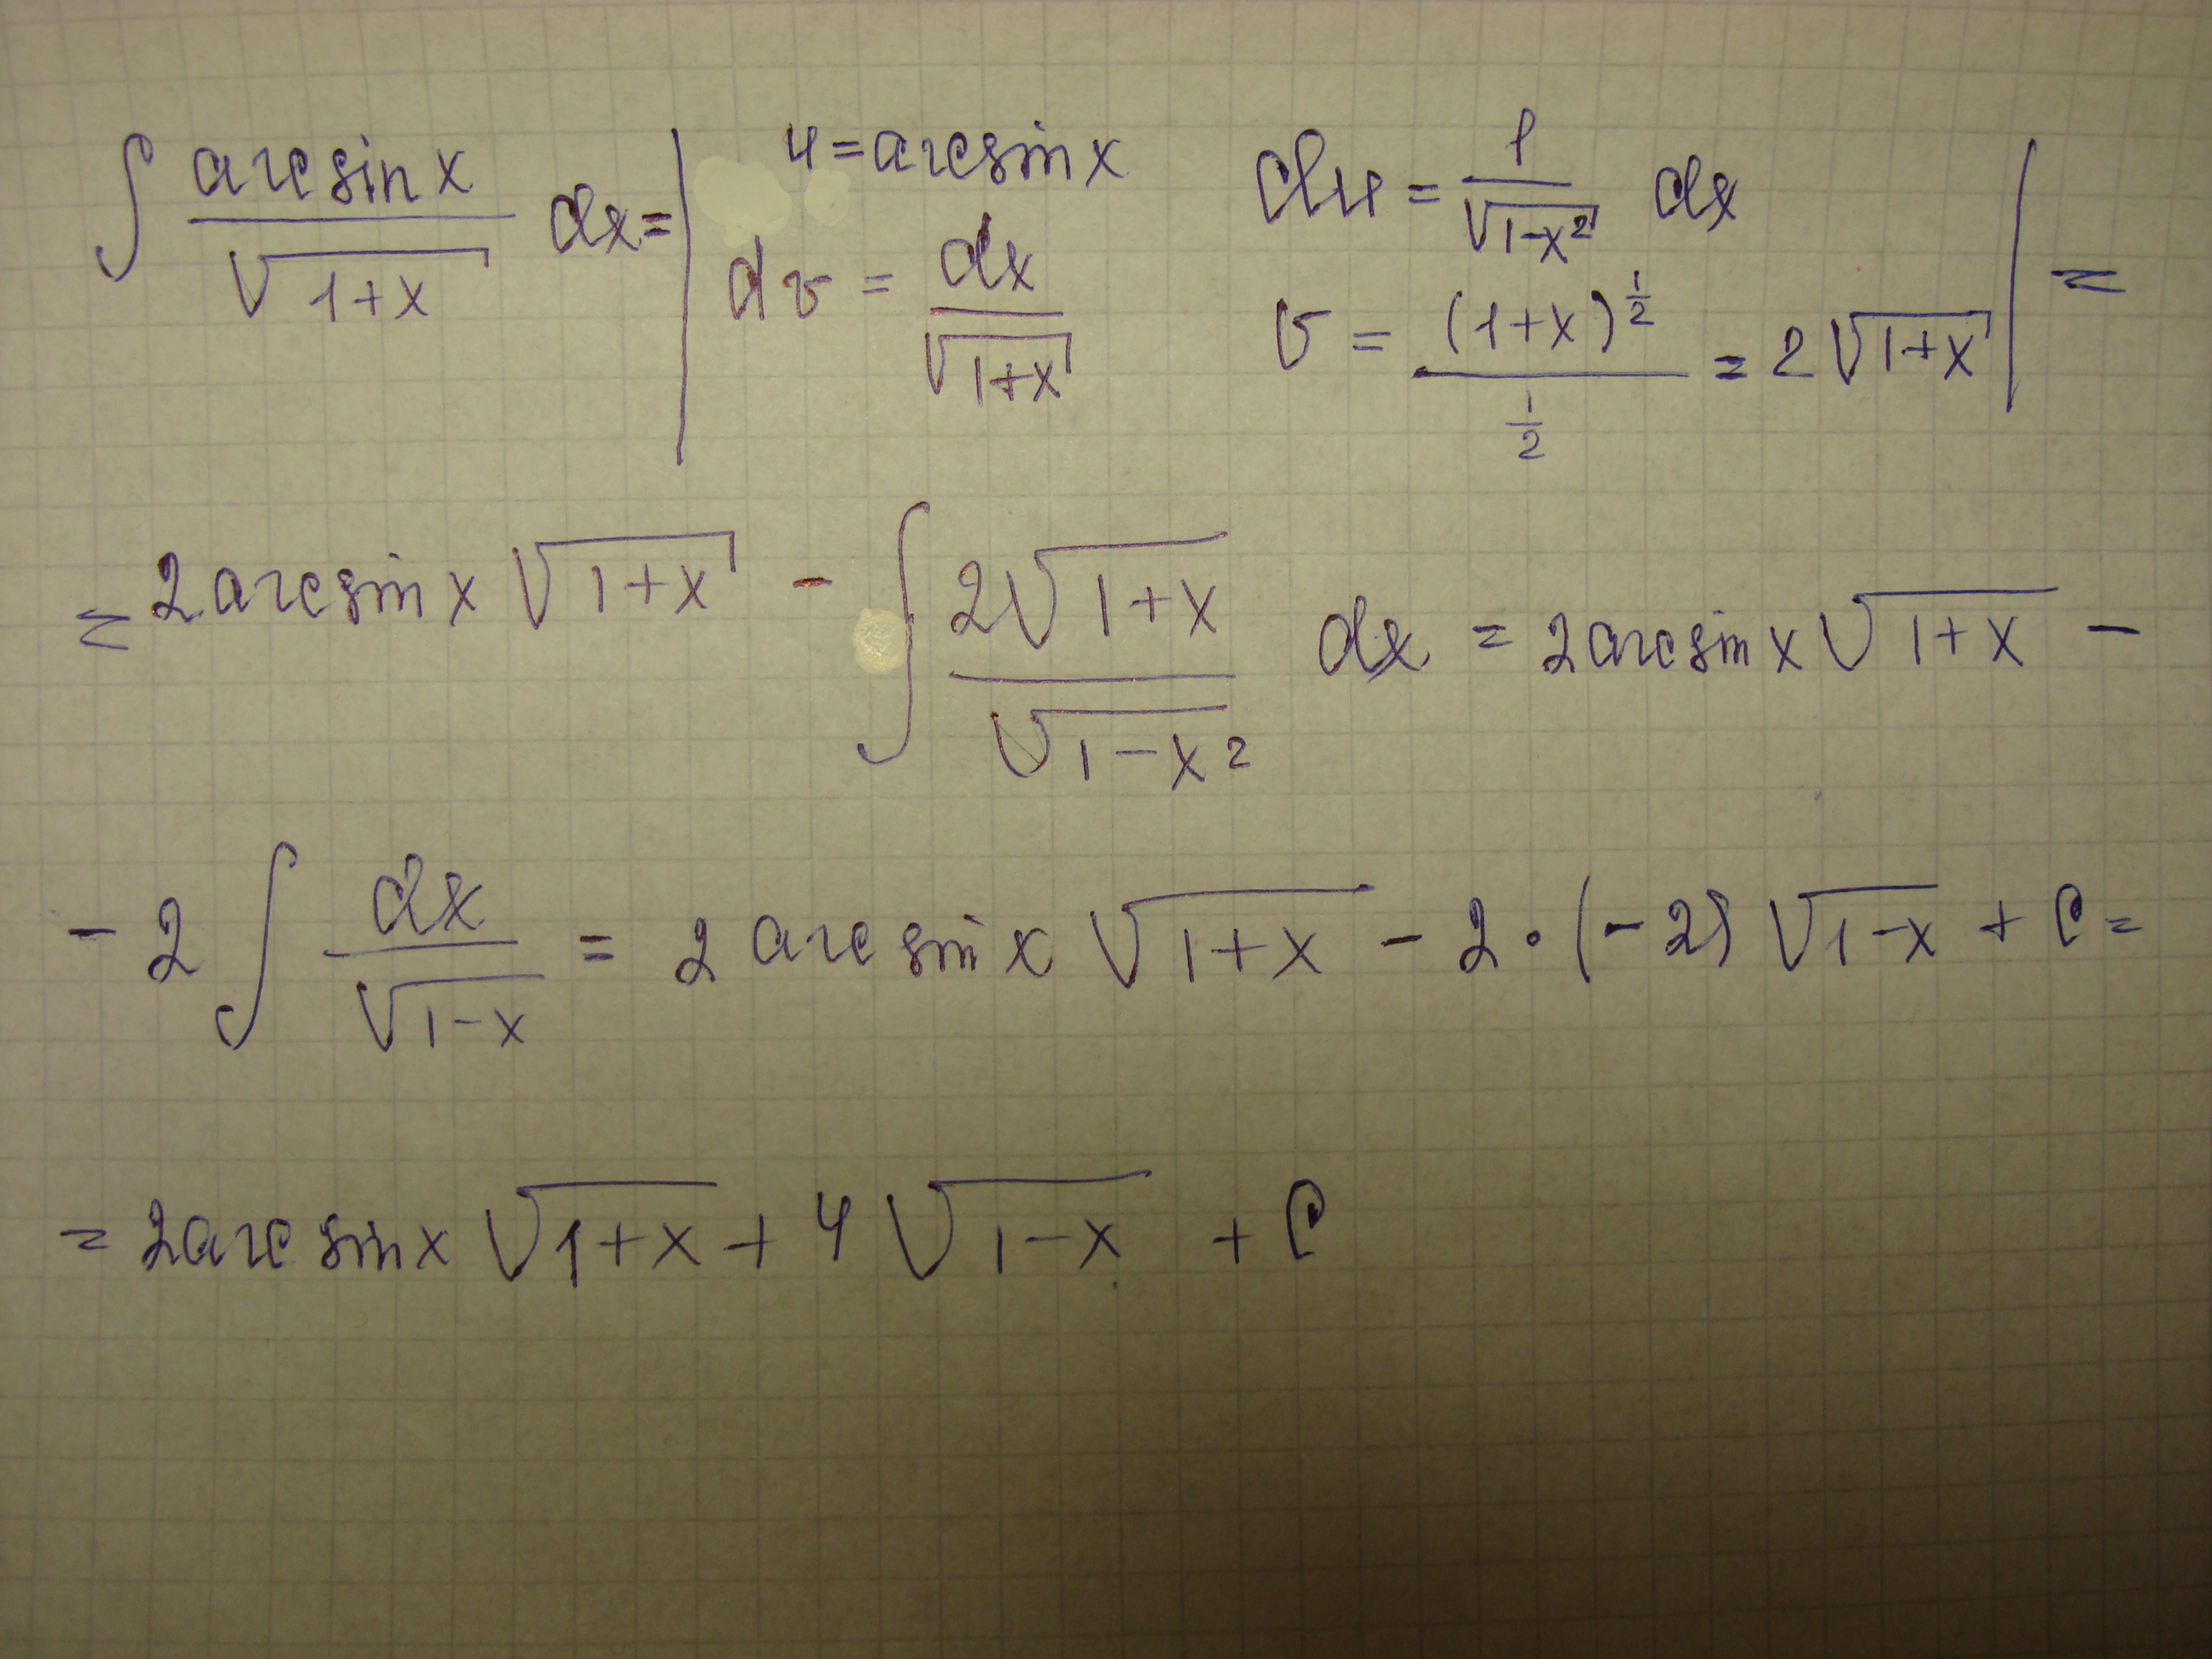 ∫ arcsin x / √(1+x) dx = | u = arcsin x   du = 1/√(1-x²) dx | =
dv = dx/√(1+x)   v = (1+x)^(1/2) / (1/2) = 2√(1+x)
= 2 arcsin x √(1+x) - ∫ 2√(1+x) / √(1-x²) dx = 2 arcsin x √(1+x) -
- 2 ∫ dx/√(1-x) = 2 arcsin x √(1+x) - 2 · (-2) √(1-x) + C =
= 2 arcsin x √(1+x) + 4 √(1-x) + C